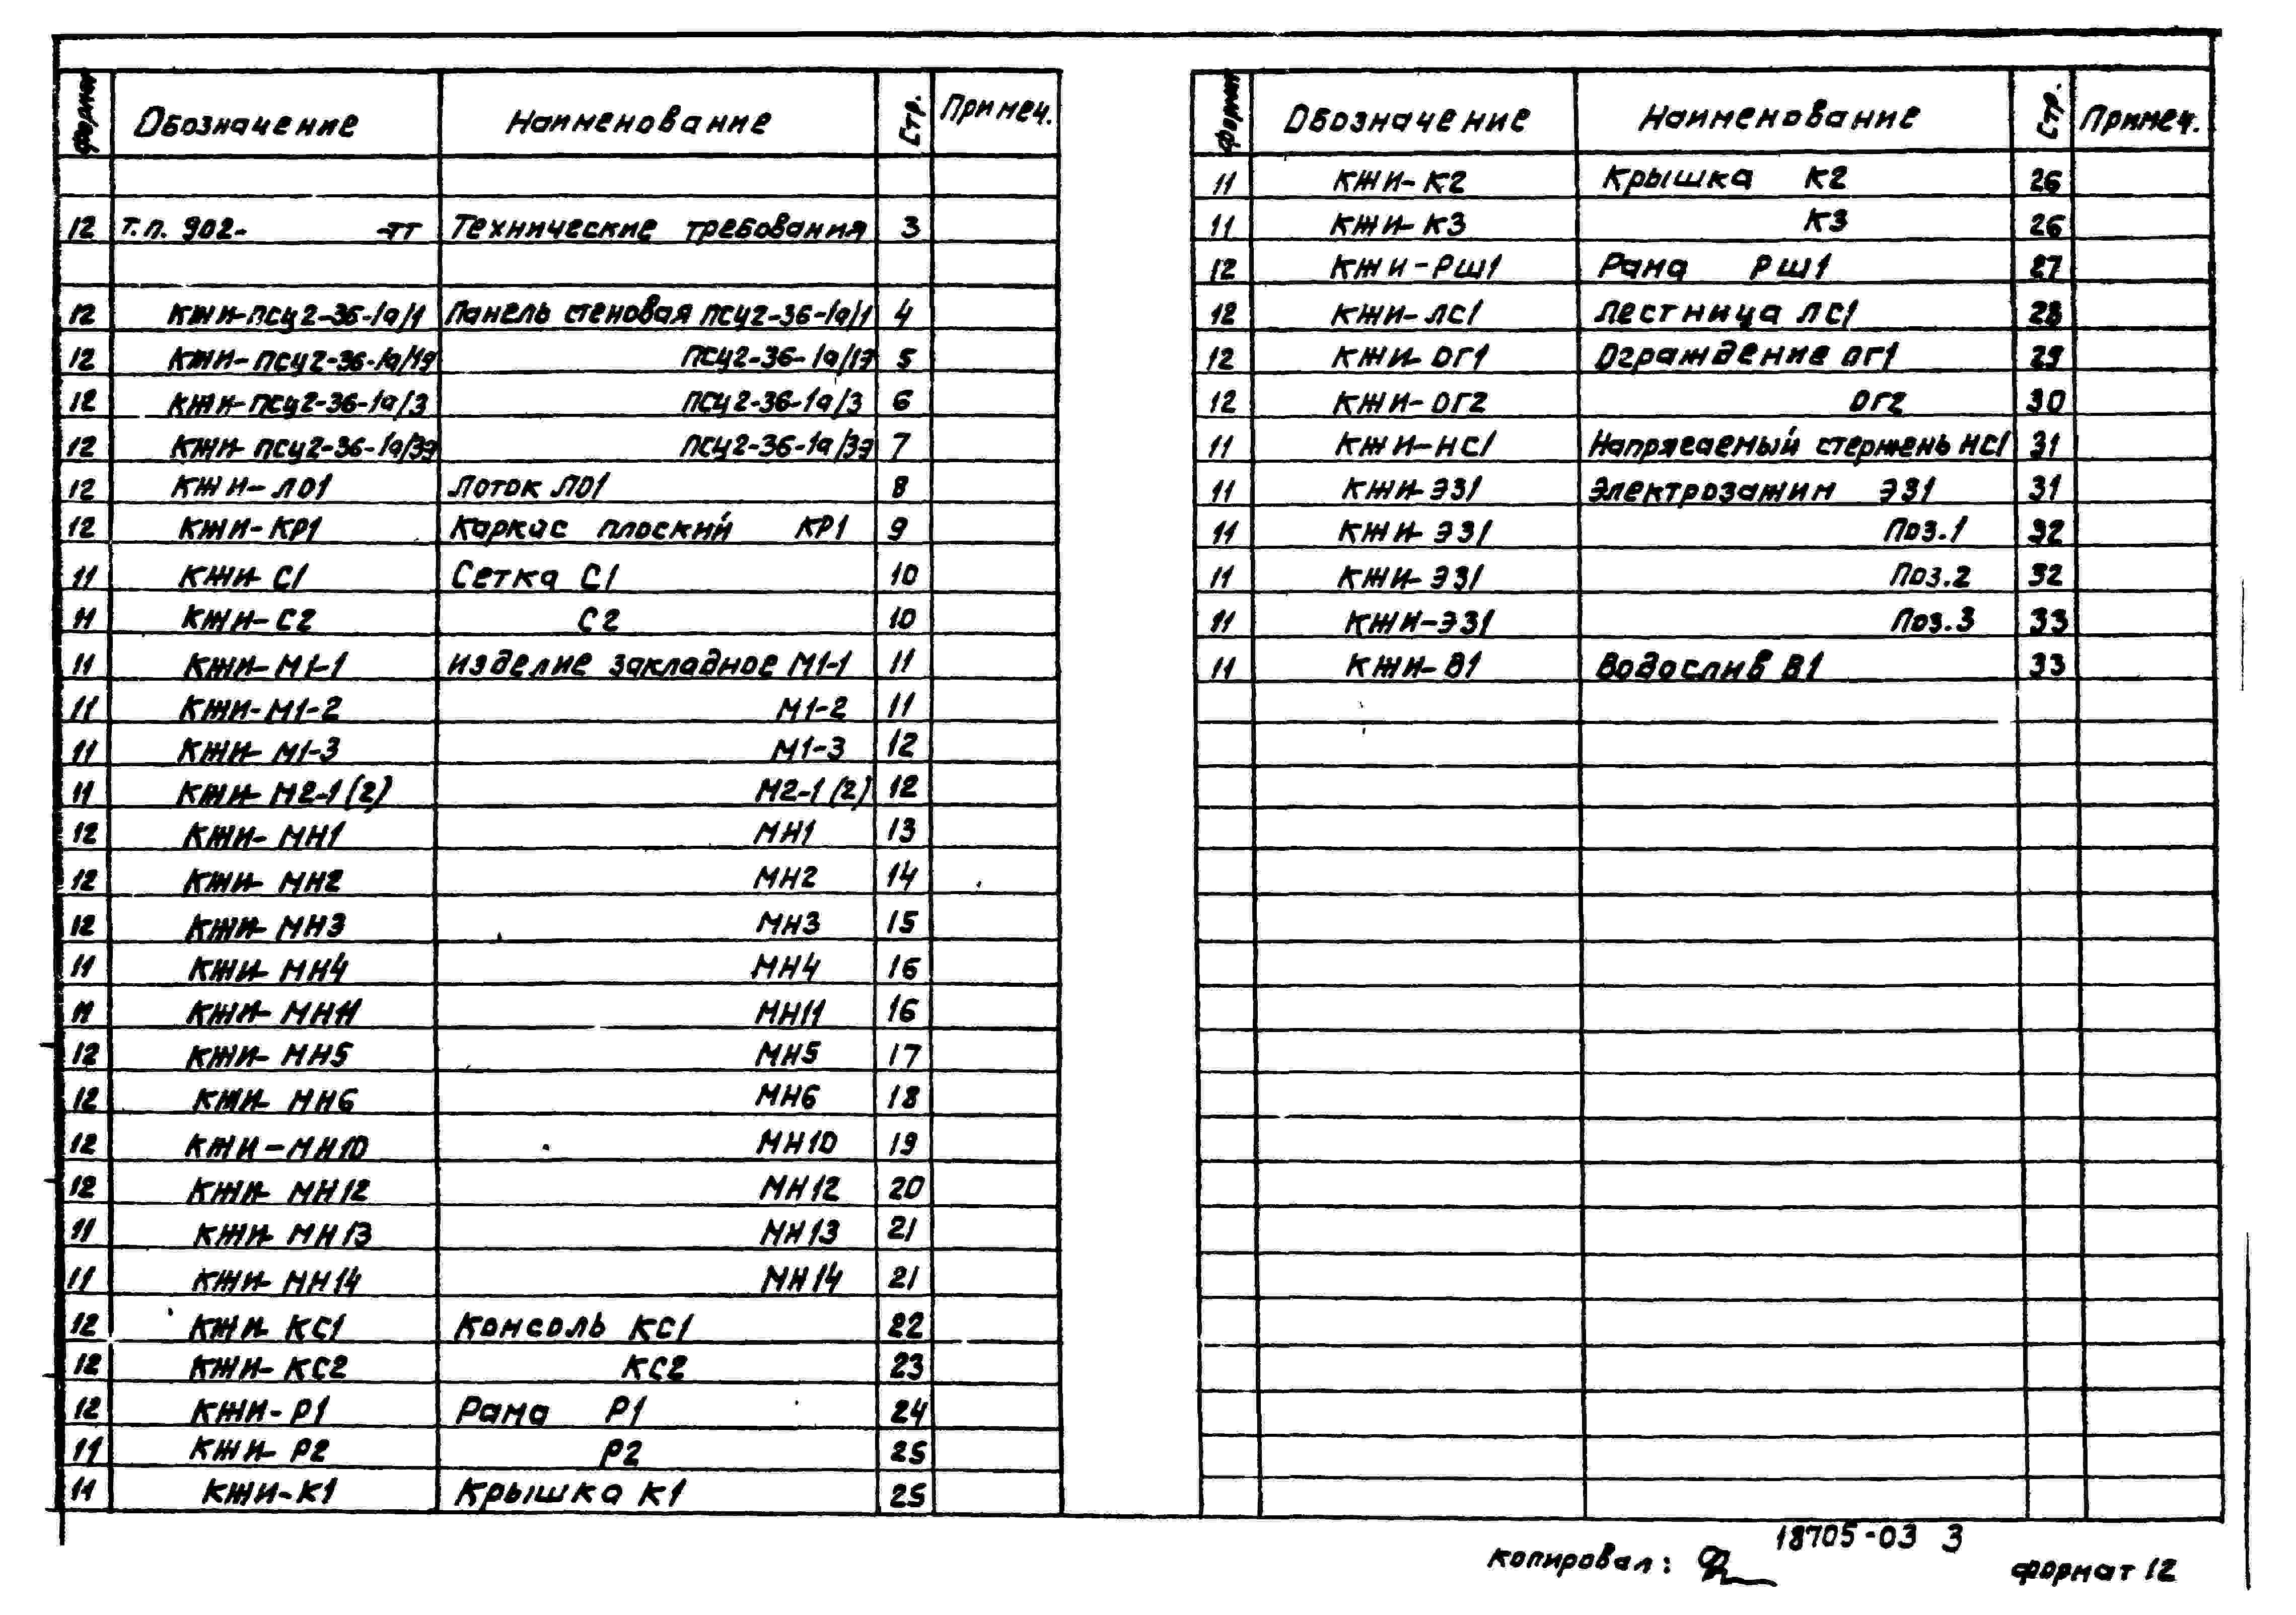 Формат Обозначение Наименование Стр. Примеч.
12 Т.п. 902- -ТТ Технические требования 3
12 КЖИ-ПСЦ2-36-1а/1 Панель стеновая ПСЦ2-36-1а/1 4
12 КЖИ-ПСЦ2-36-1а/1э ПСЦ2-36-1а/1э 5
12 КЖИ-ПСЦ2-36-1а/3 ПСЦ2-36-1а/3 6
12 КЖИ-ПСЦ2-36-1а/3э ПСЦ2-36-1а/3э 7
12 КЖИ-ЛО1 Лоток ЛО1 8
12 КЖИ-КР1 Каркас плоский КР1 9
11 КЖИ-С1 Сетка С1 10
11 КЖИ-С2 С2 10
11 КЖИ-М1-1 Изделие закладное М1-1 11
11 КЖИ-М1-2 М1-2 11
11 КЖИ-М1-3 М1-3 12
11 КЖИ-М2-1(2) М2-1(2) 12
12 КЖИ-МН1 МН1 13
12 КЖИ-МН2 МН2 14
12 КЖИ-МН3 МН3 15
11 КЖИ-МН4 МН4 16
11 КЖИ-МН11 МН11 16
12 КЖИ-МН5 МН5 17
12 КЖИ-МН6 МН6 18
12 КЖИ-МН10 МН10 19
12 КЖИ-МН12 МН12 20
11 КЖИ-МН13 МН13 21
11 КЖИ-МН14 МН14 21
12 КЖИ-КС1 Консоль КС1 22
12 КЖИ-КС2 КС2 23
12 КЖИ-Р1 Рама Р1 24
11 КЖИ-Р2 Р2 25
11 КЖИ-К1 Крышка К1 25
Формат Обозначение Наименование Стр. Примеч.
11 КЖИ-К2 Крышка К2 26
11 КЖИ-К3 К3 26
12 КЖИ-РШ1 Рама РШ1 27
12 КЖИ-ЛС1 Лестница ЛС1 28
12 КЖИ-ОГ1 Ограждение ОГ1 29
12 КЖИ-ОГ2 ОГ2 30
11 КЖИ-НС1 Напрягаемый стержень НС1 31
11 КЖИ-ЭЗ1 Электрозажим ЭЗ1 31
11 КЖИ-ЭЗ1 Поз.1 32
11 КЖИ-ЭЗ1 Поз.2 32
11 КЖИ-ЭЗ1 Поз.3 33
11 КЖИ-В1 Водослив В1 33
18705-03 3
копировал: формат 12